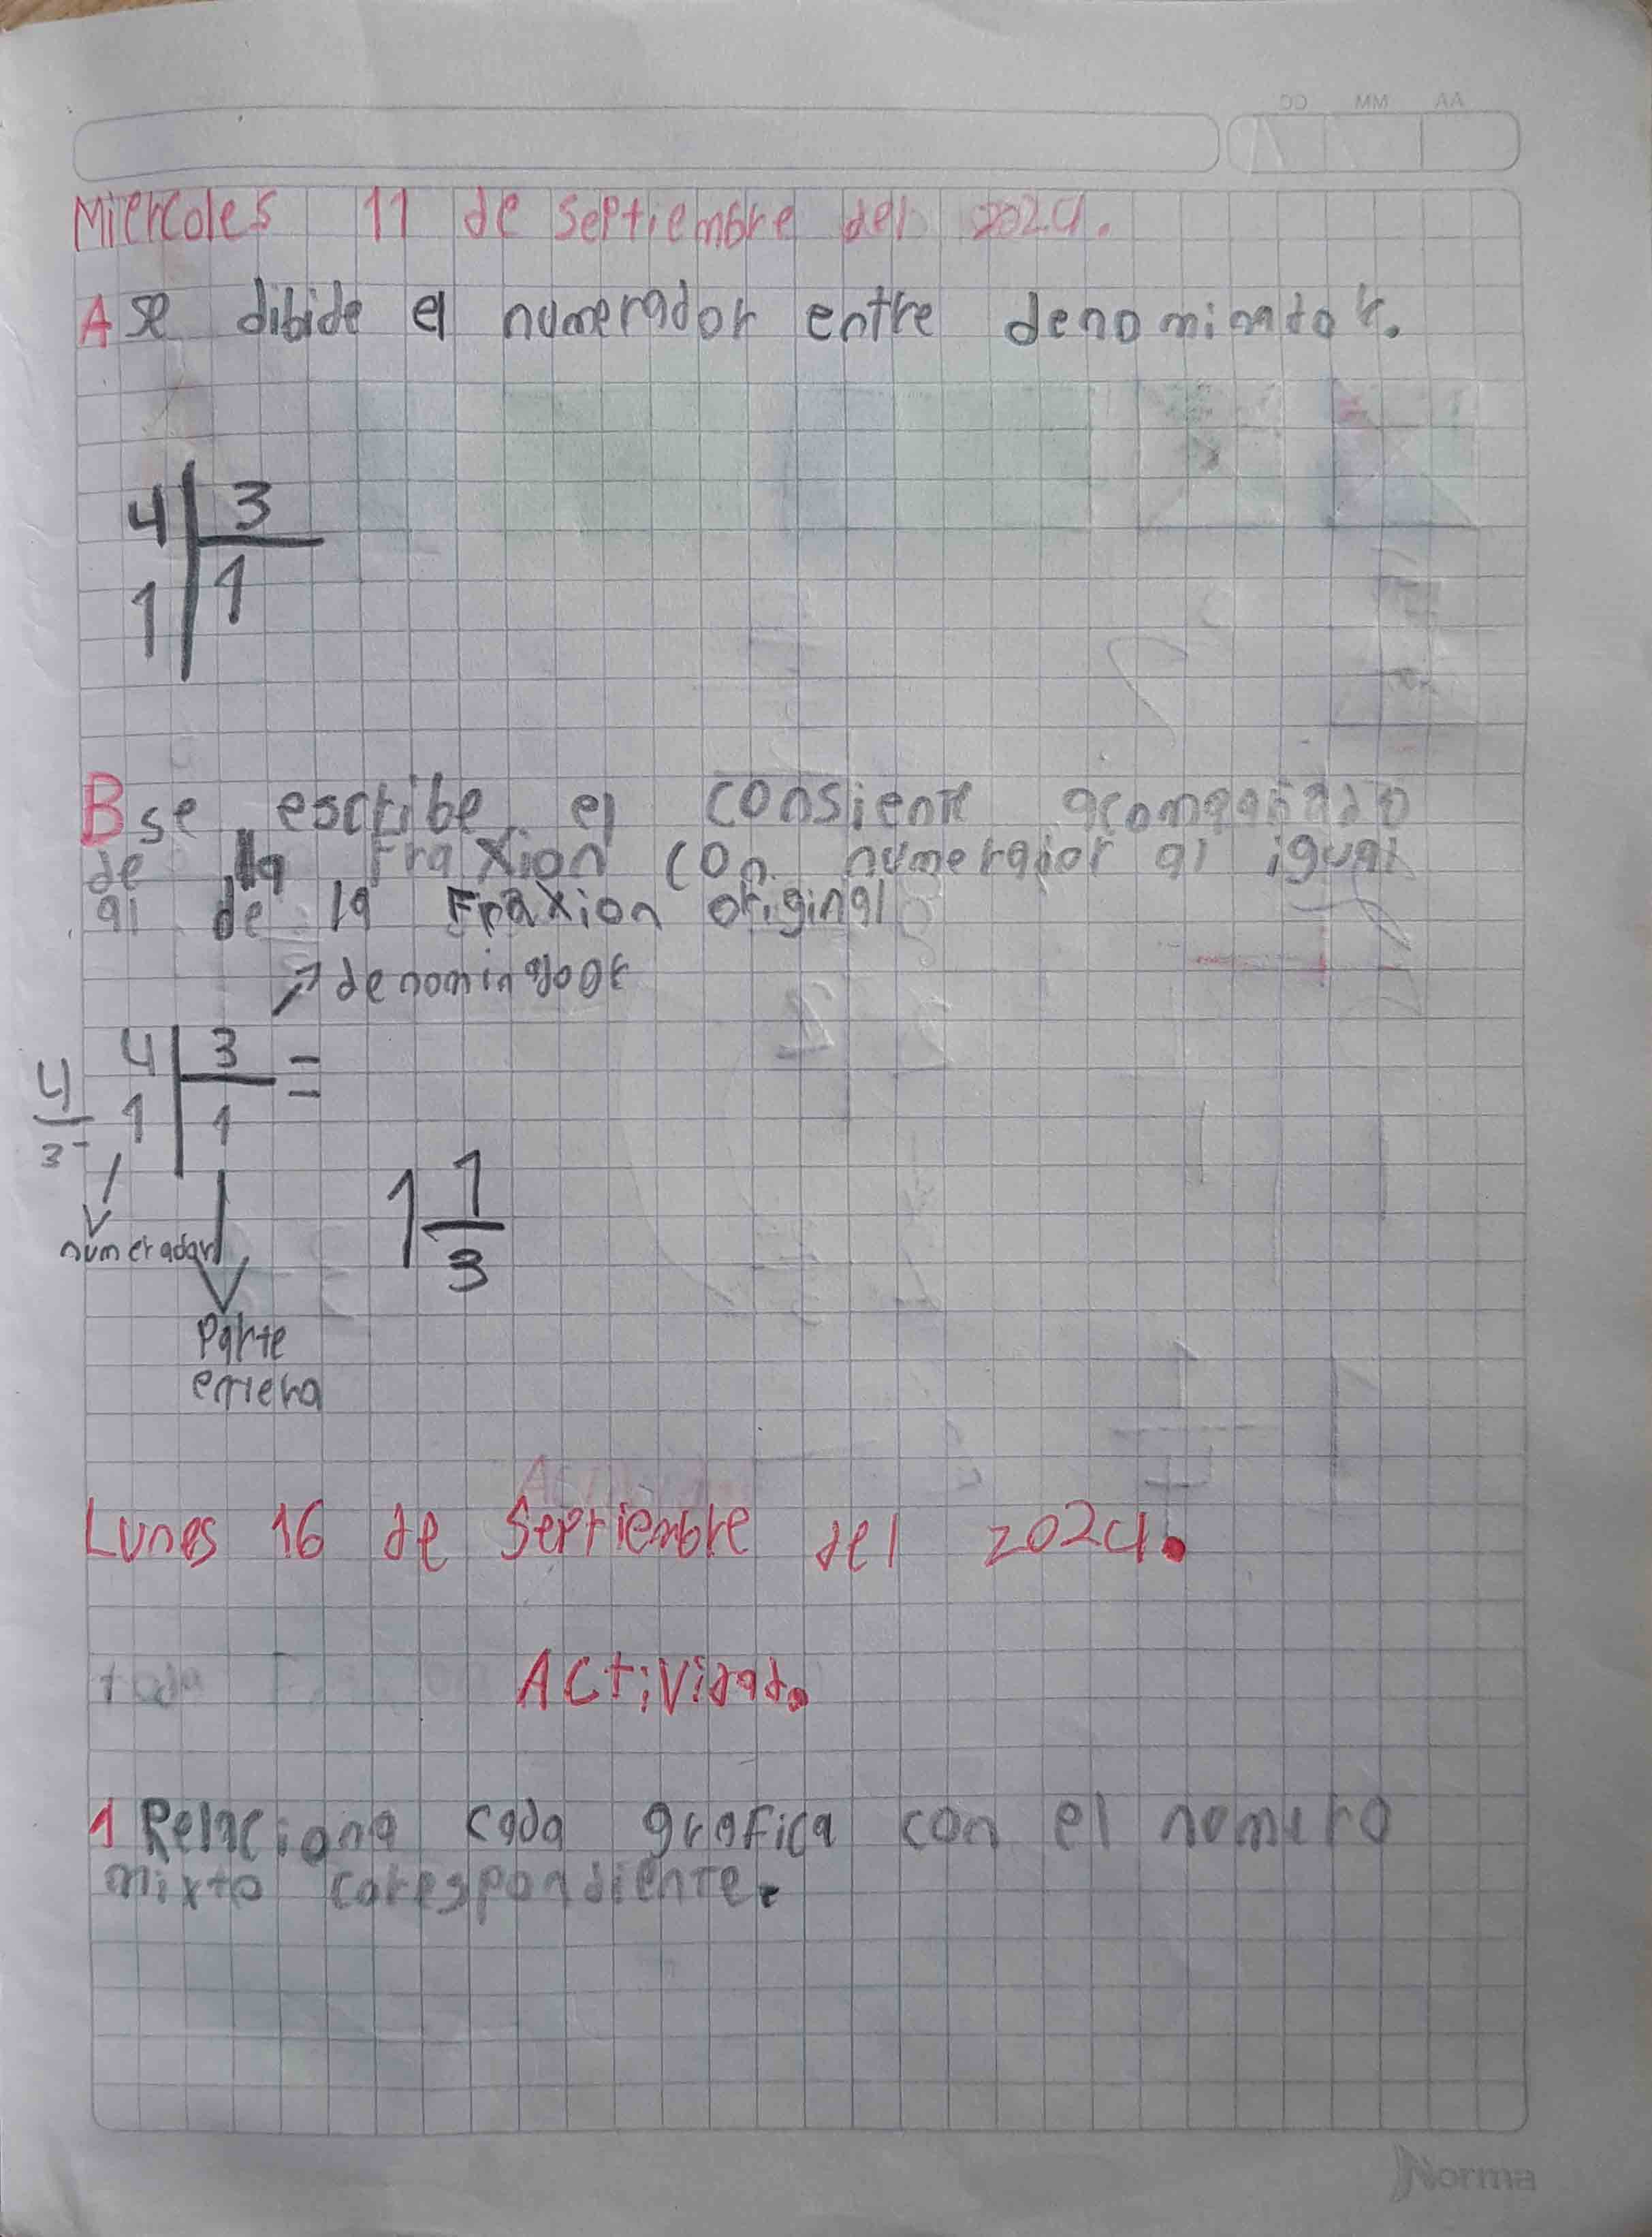 Miercoles 11 de septiembre del 2024.
A se dibide el numerador entre denominador.
4 3
1 1
B se escribe el consiente acompañado
de la Fraxion con numerador al igual
al de la Fraxion original
denominador
4 3 =
4/3 1 1
numerador
1 1/3
Parte
entera
Lunes 16 de Septiembre del 2024.
toda
Actividad.
1 Relaciona cada grafica con el numero
mixto correspondiente.
Norma